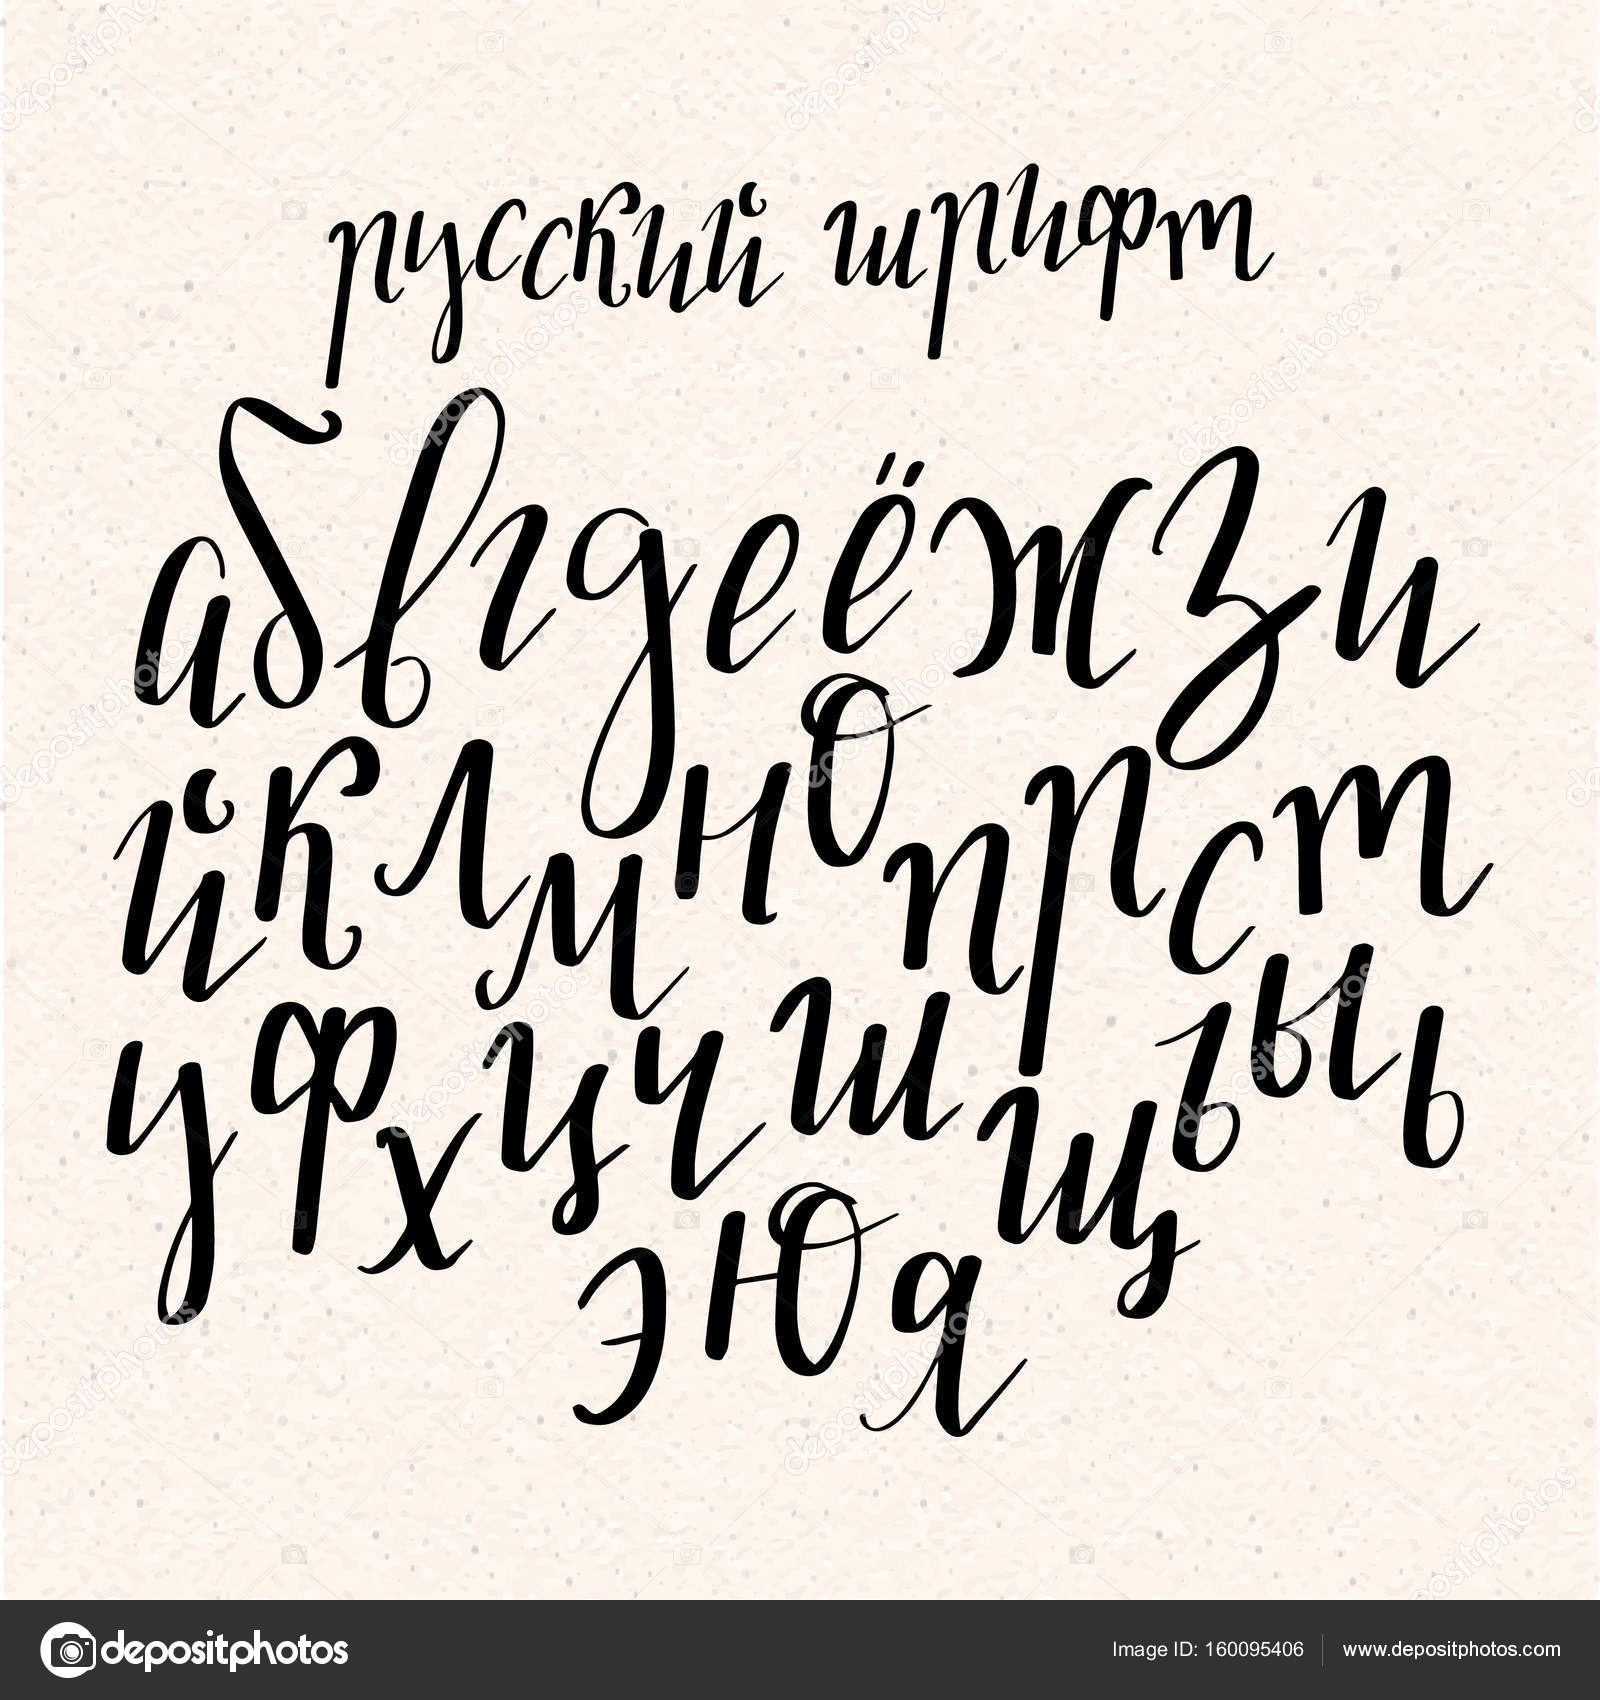 русский шрифт
абвгдеёжзи
йклмнопрст
уфхцчшщъыь
эюя
depositphotos
Image ID: 160095406 www.depositphotos.com